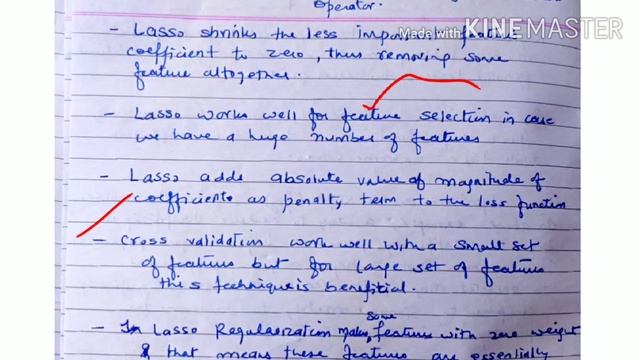 operator.
- Lasso shrinks the less impor feature
Made with KINEMASTER
coefficient to zero, thus removing some
feature altogether.
- Lasso works well for feature selection in case
we have a huge number of features
- Lasso adds absolute value of magnitude of
coefficients as penalty term to the loss function
- Cross validation work well with a small set
of features but for large set of features
this technique is benefitial.
some
- In Lasso Regularization makes features with zero weight
& that means these features are essentially